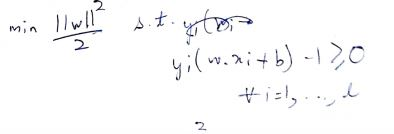 min ||w||²/2 s.t.
yi(w.xi+b) -1 ≥ 0
∀ i=1, ..., l
2